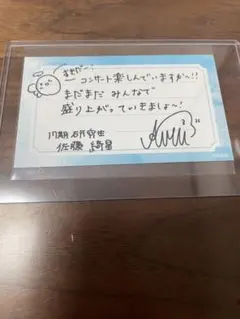 コンサート楽しんでいますか〜!!
まだまだ みんなで
盛り上がっていきましょ〜!
17期研究生
佐藤 綺星